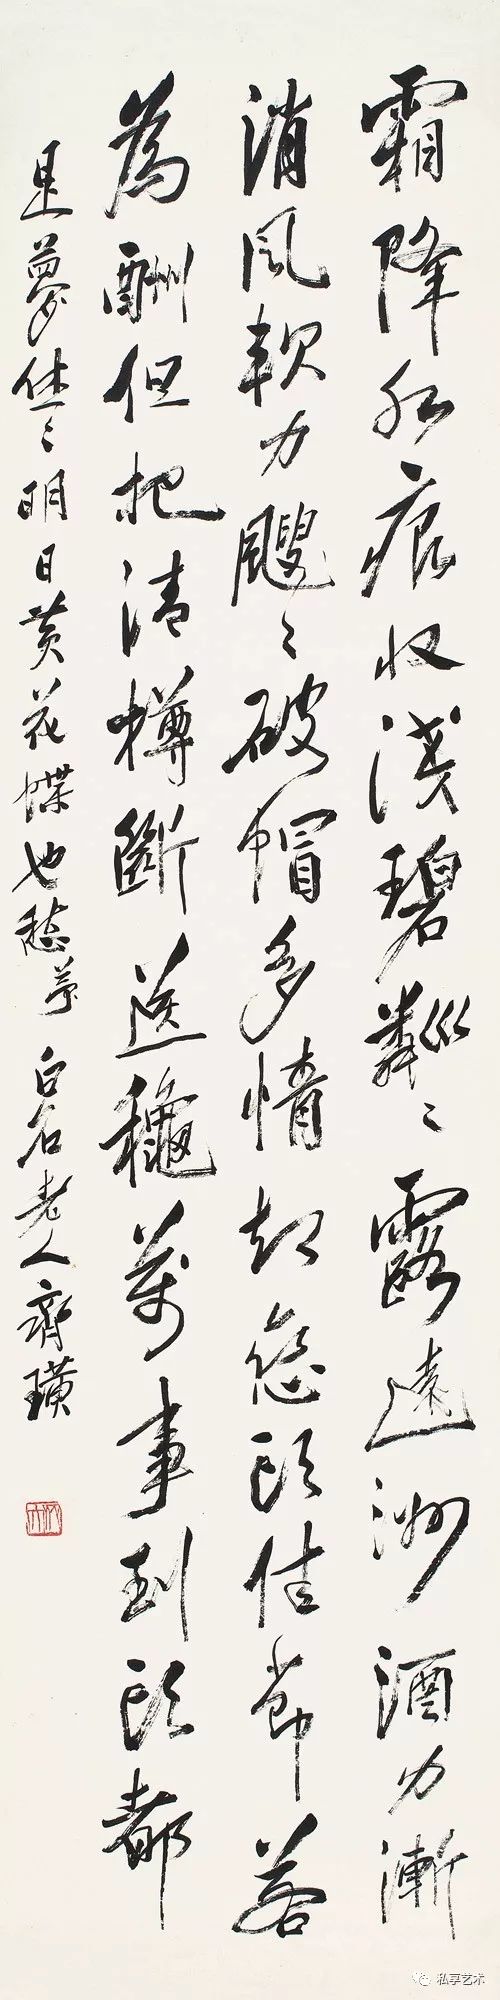 霜降水痕收淺碧粼〻露遠洲酒力漸
消風軟力颼〻破帽多情却戀頭佳節若
為酬但把清樽斷送龝萬事到頭都
是夢休〻明日黃花蝶也愁 白石老人齊璜
私享艺术